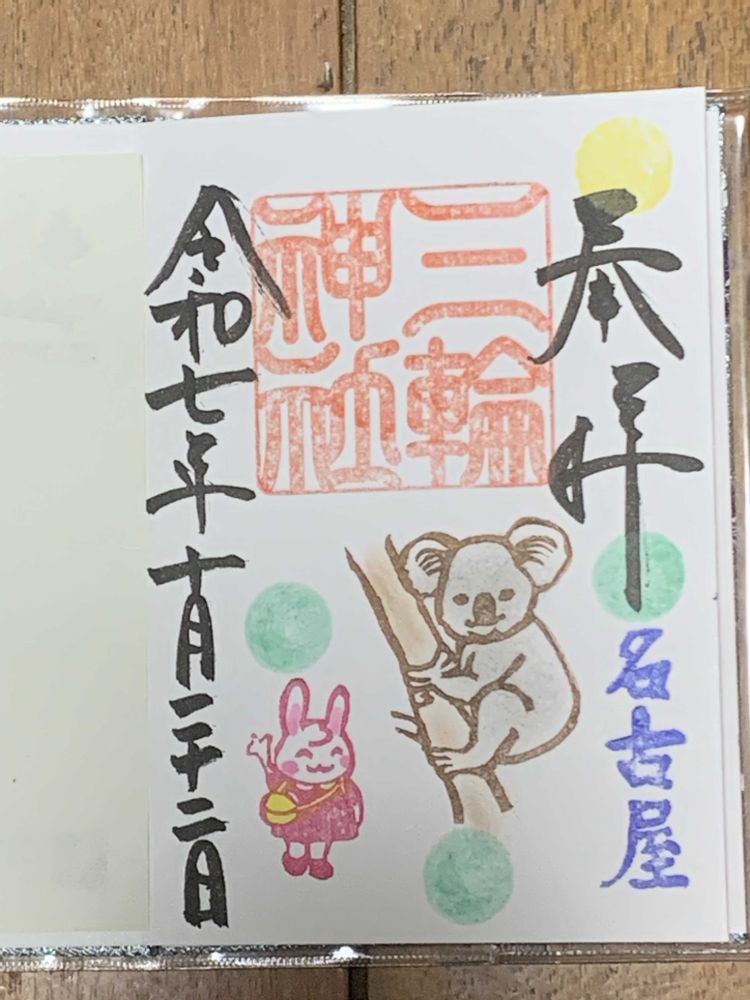 奉拝
名古屋
三輪
神社
令和七年十月二十二日